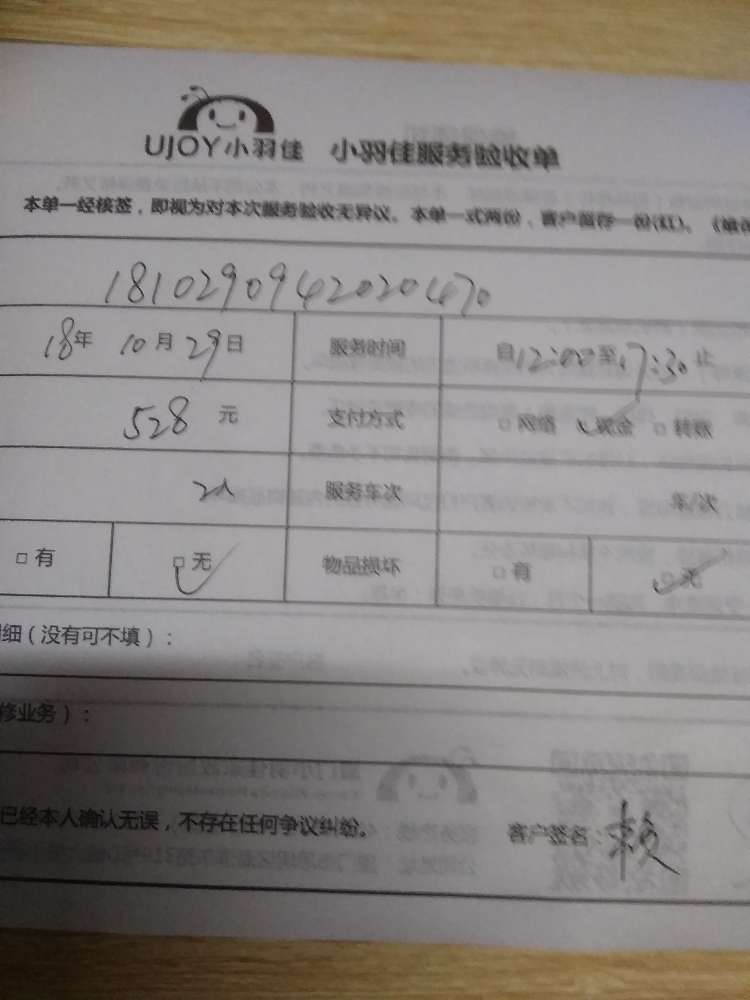 UJOY小羽佳 小羽佳服务验收单
本单一经核签，即视为对本次服务验收无异议。本单一式两份，客户留存一份(红)。
1810290942020470
18年 10月29日 服务时间 自12:00至17:30止
528 元 支付方式 □网络 现金 □转账
2人 服务车次 车/次
□有 □无 物品损坏 □有 □无
细（没有可不填）：
修业务）：
已经本人确认无误，不存在任何争议纠纷。 客户签名：赖